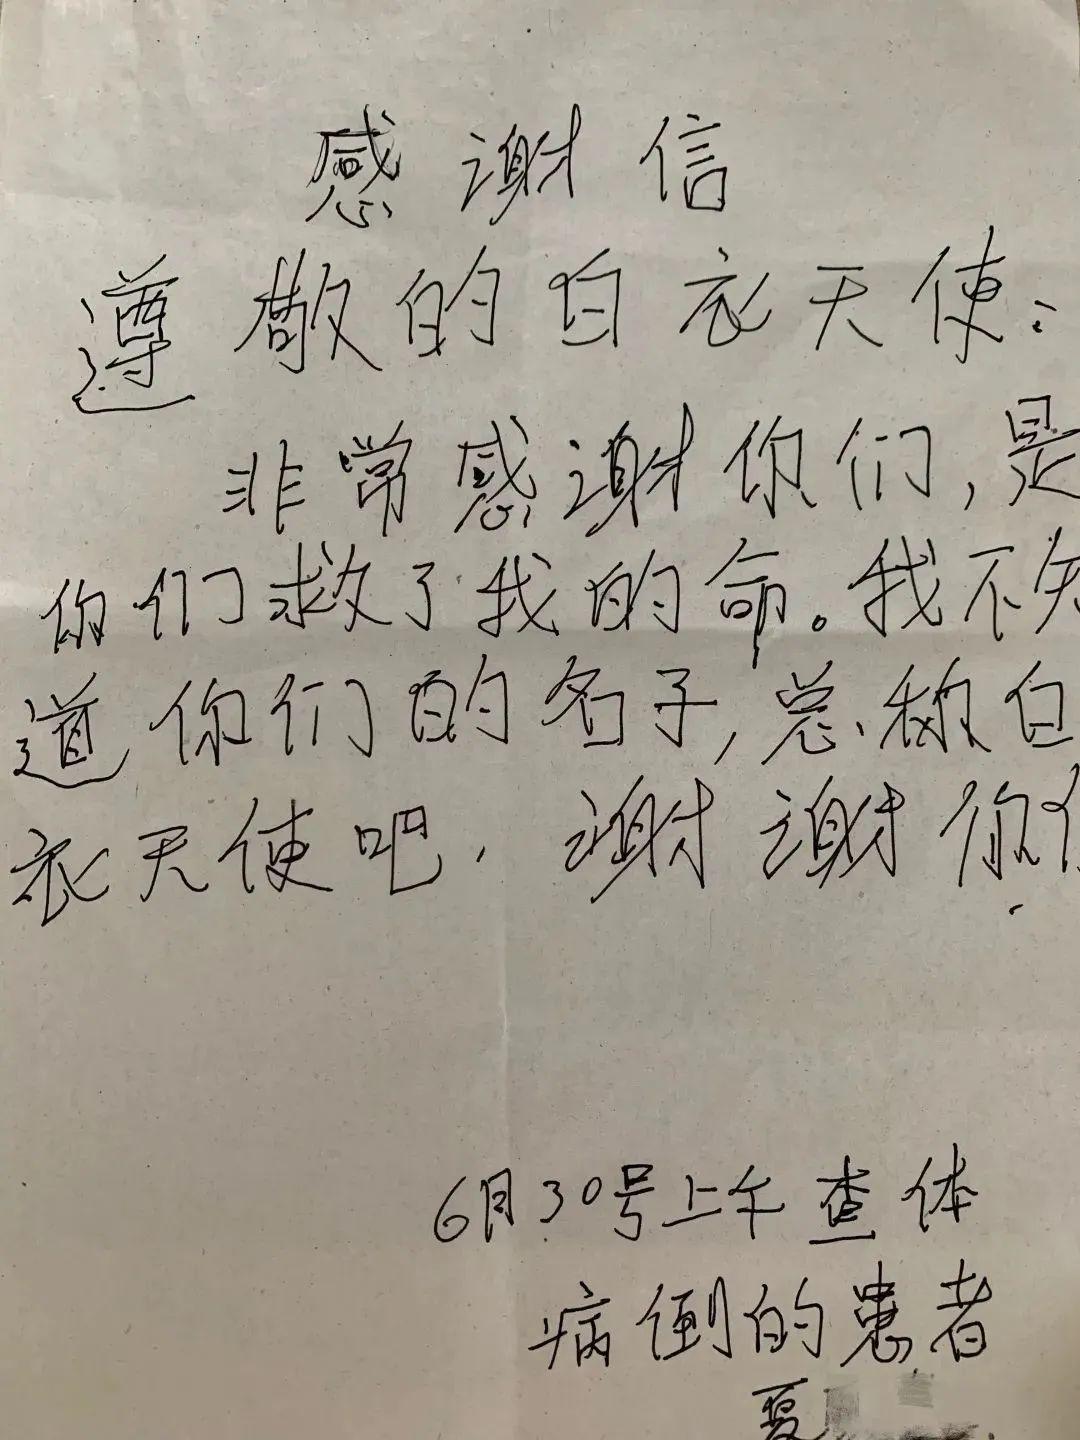 感谢信
遵敬的白衣天使：
非常感谢你们，是
你们救了我的命。我不知
道你们的名子，总称白
衣天使吧，谢谢你们
.
6月30号上午查体
病倒的患者
夏